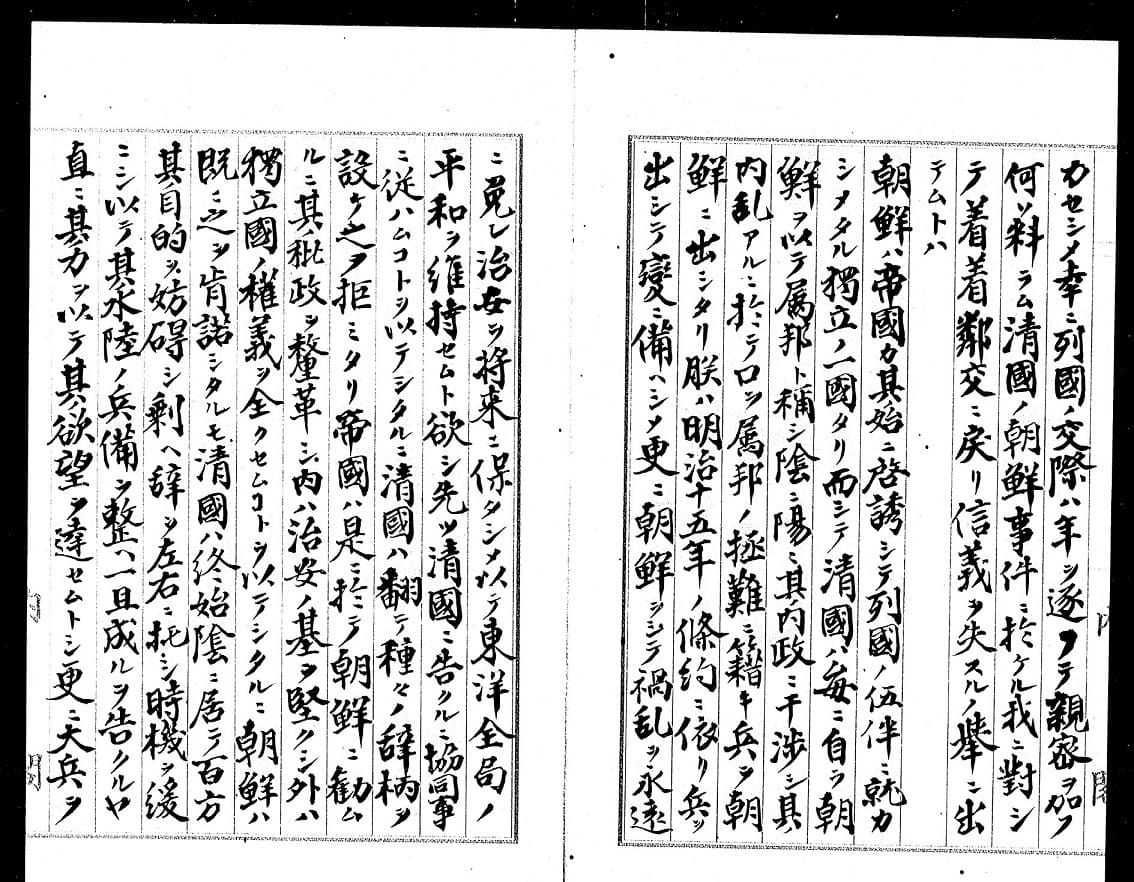 カセシメ幸ニ列國ノ交際ハ年ヲ逐フテ親密ヲ加フ
何ソ料ラム清國ノ朝鮮事件ニ於ケル我ニ對シ
テ着着鄰交ニ戻リ信義ヲ失スルノ擧ニ出
テムトハ
朝鮮ハ帝國カ其始ニ啓誘シテ列國ノ伍伴ニ就カ
シメタル獨立ノ一國タリ而シテ清國ハ毎ニ自ラ朝
鮮ヲ以テ属邦ト稱シ陰ニ陽ニ其内政ニ干渉シ其
内乱アルニ於テ口ヲ属邦ノ拯難ニ籍キ兵ヲ朝
鮮ニ出シタリ朕ハ明治十五年ノ條約ニ依リ兵ヲ
出シテ變ニ備ヘシメ更ニ朝鮮ヲシテ禍乱ヲ永遠
ニ免レ治安ヲ将来ニ保タシメ以テ東洋全局ノ
平和ヲ維持セムト欲シ先ツ清國ニ告クルニ協同事
ニ従ハムコトヲ以テシタルニ清國ハ翻テ種々ノ辞柄ヲ
設ケ之ヲ拒ミタリ帝國ハ是ニ於テ朝鮮ニ勧ム
ルニ其秕政ヲ釐革シ内ハ治安ノ基ヲ堅クシ外ハ
獨立國ノ權義ヲ全クセムコトヲ以テシタルニ朝鮮ハ
既ニ之ヲ肯諾シタルモ清國ハ終始陰ニ居テ百方
其目的ヲ妨碍シ剰ヘ辞ヲ左右ニ托シ時機ヲ緩
ニシ以テ其水陸ノ兵備ヲ整ヘ一旦成ルヲ告クルヤ
直ニ其力ヲ以テ其欲望ヲ達セムトシ更ニ大兵ヲ